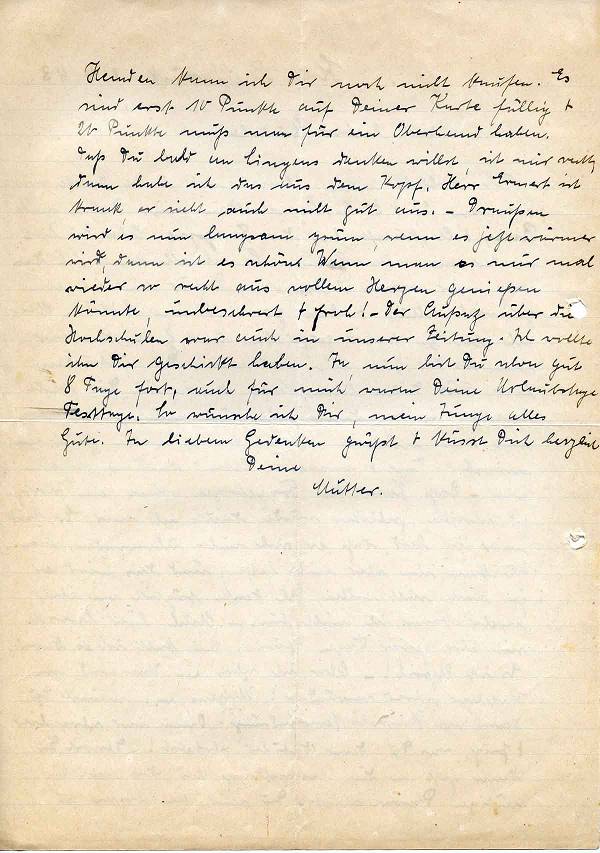 Hemden kann ich Dir noch nicht kaufen. Es
sind erst 10 Punkte auf Deiner Karte fällig +
20 Punkte muß man für ein Oberhemd haben.
Daß Du bald an Lingens danken willst, ist mir recht,
dann habe ich das aus dem Kopf. Herr Ernert ist
krank, er sieht auch nicht gut aus. – Draußen
wird es nun langsam grün, wenn es jetzt wärmer
wird, dann ist es schön! Wenn man es nur mal
wieder so recht aus vollem Herzen genießen
könnte, unbeschwert + froh! – Der Aufsatz über die
Hochschulen war auch in unserer Zeitung. Ich wollte
ihn Dir geschickt haben. Ja, nun bist Du schon gut
8 Tage fort, auch für mich waren Deine Urlaubstage
Festtage. So wünsche ich Dir, mein Junge alles
Gute. In liebem Gedenken grüßt + küsst Dich herzlich
Deine
Mutter.